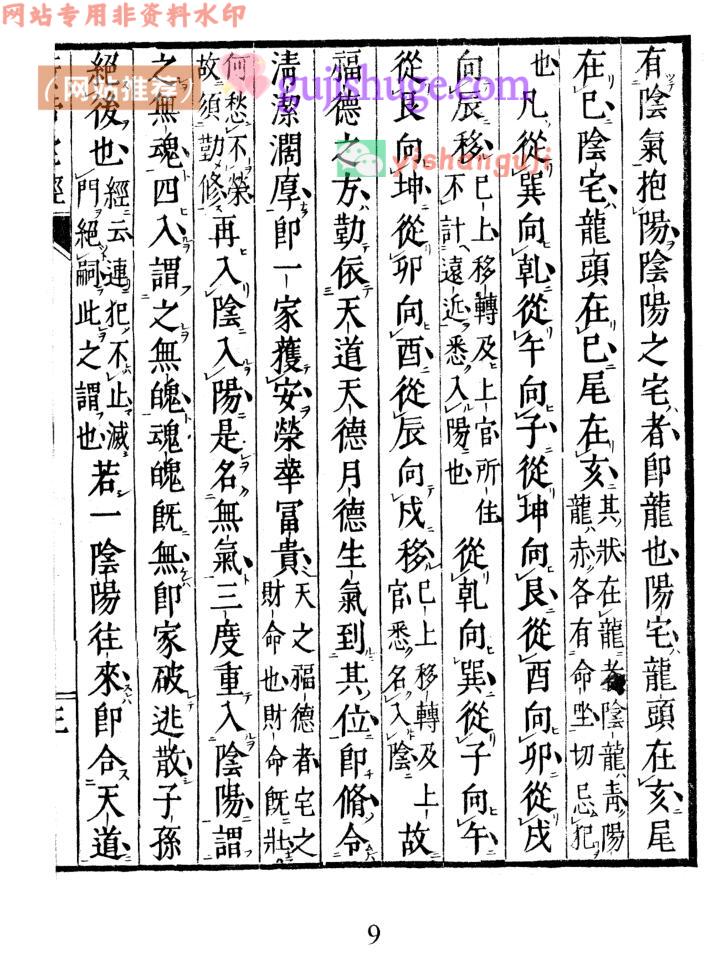 网站专用非资料水印
(网站推荐)
gujishuge.com
yishanguji
有陰氣抱陽陰陽之宅者即龍也陽宅龍頭在亥尾
在巳陰宅龍頭在巳尾在亥其狀在龍陰龍靑陽龍赤各有命坐切忌犯
也凡從巽向乾從午向子從坤向艮從酉向卯從戌
向辰移巳上移轉及上官所住不計遠近悉入陽也從乾向巽從子向午
從艮向坤從卯向酉從辰向戌移巳上移轉及上官悉名入陰故
福德之方勤依天道天德月德生氣到其位即脩令
清潔濶厚即一家獲安榮華冨貴天之福德者宅之財命也財命旣壯
何愁不榮故須勤修再入陰入陽是名無氣三度重入陰陽謂
之無魂四入謂之無魄魂魄旣無即家破逃散子孫
絕後也經云連犯不止滅門絕嗣此之謂也若一陰陽往來即合天道
9